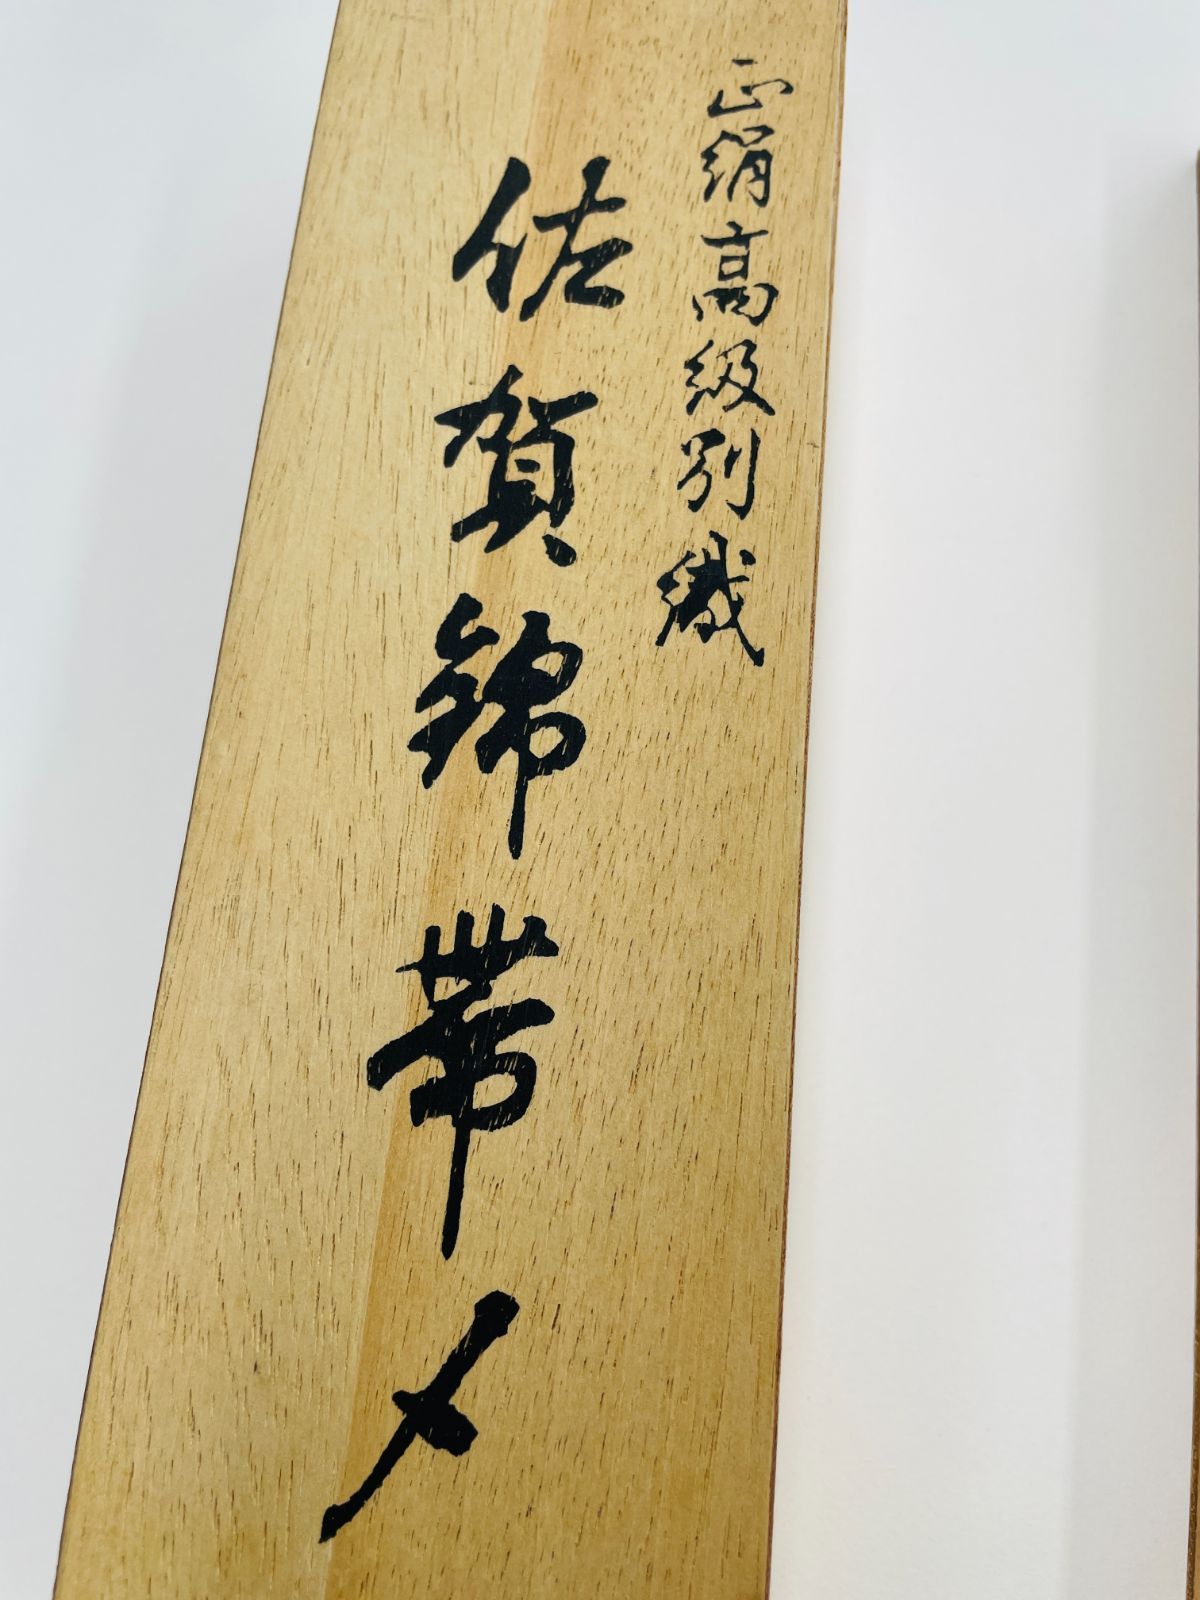 正絹高級別織
佐賀錦帯〆